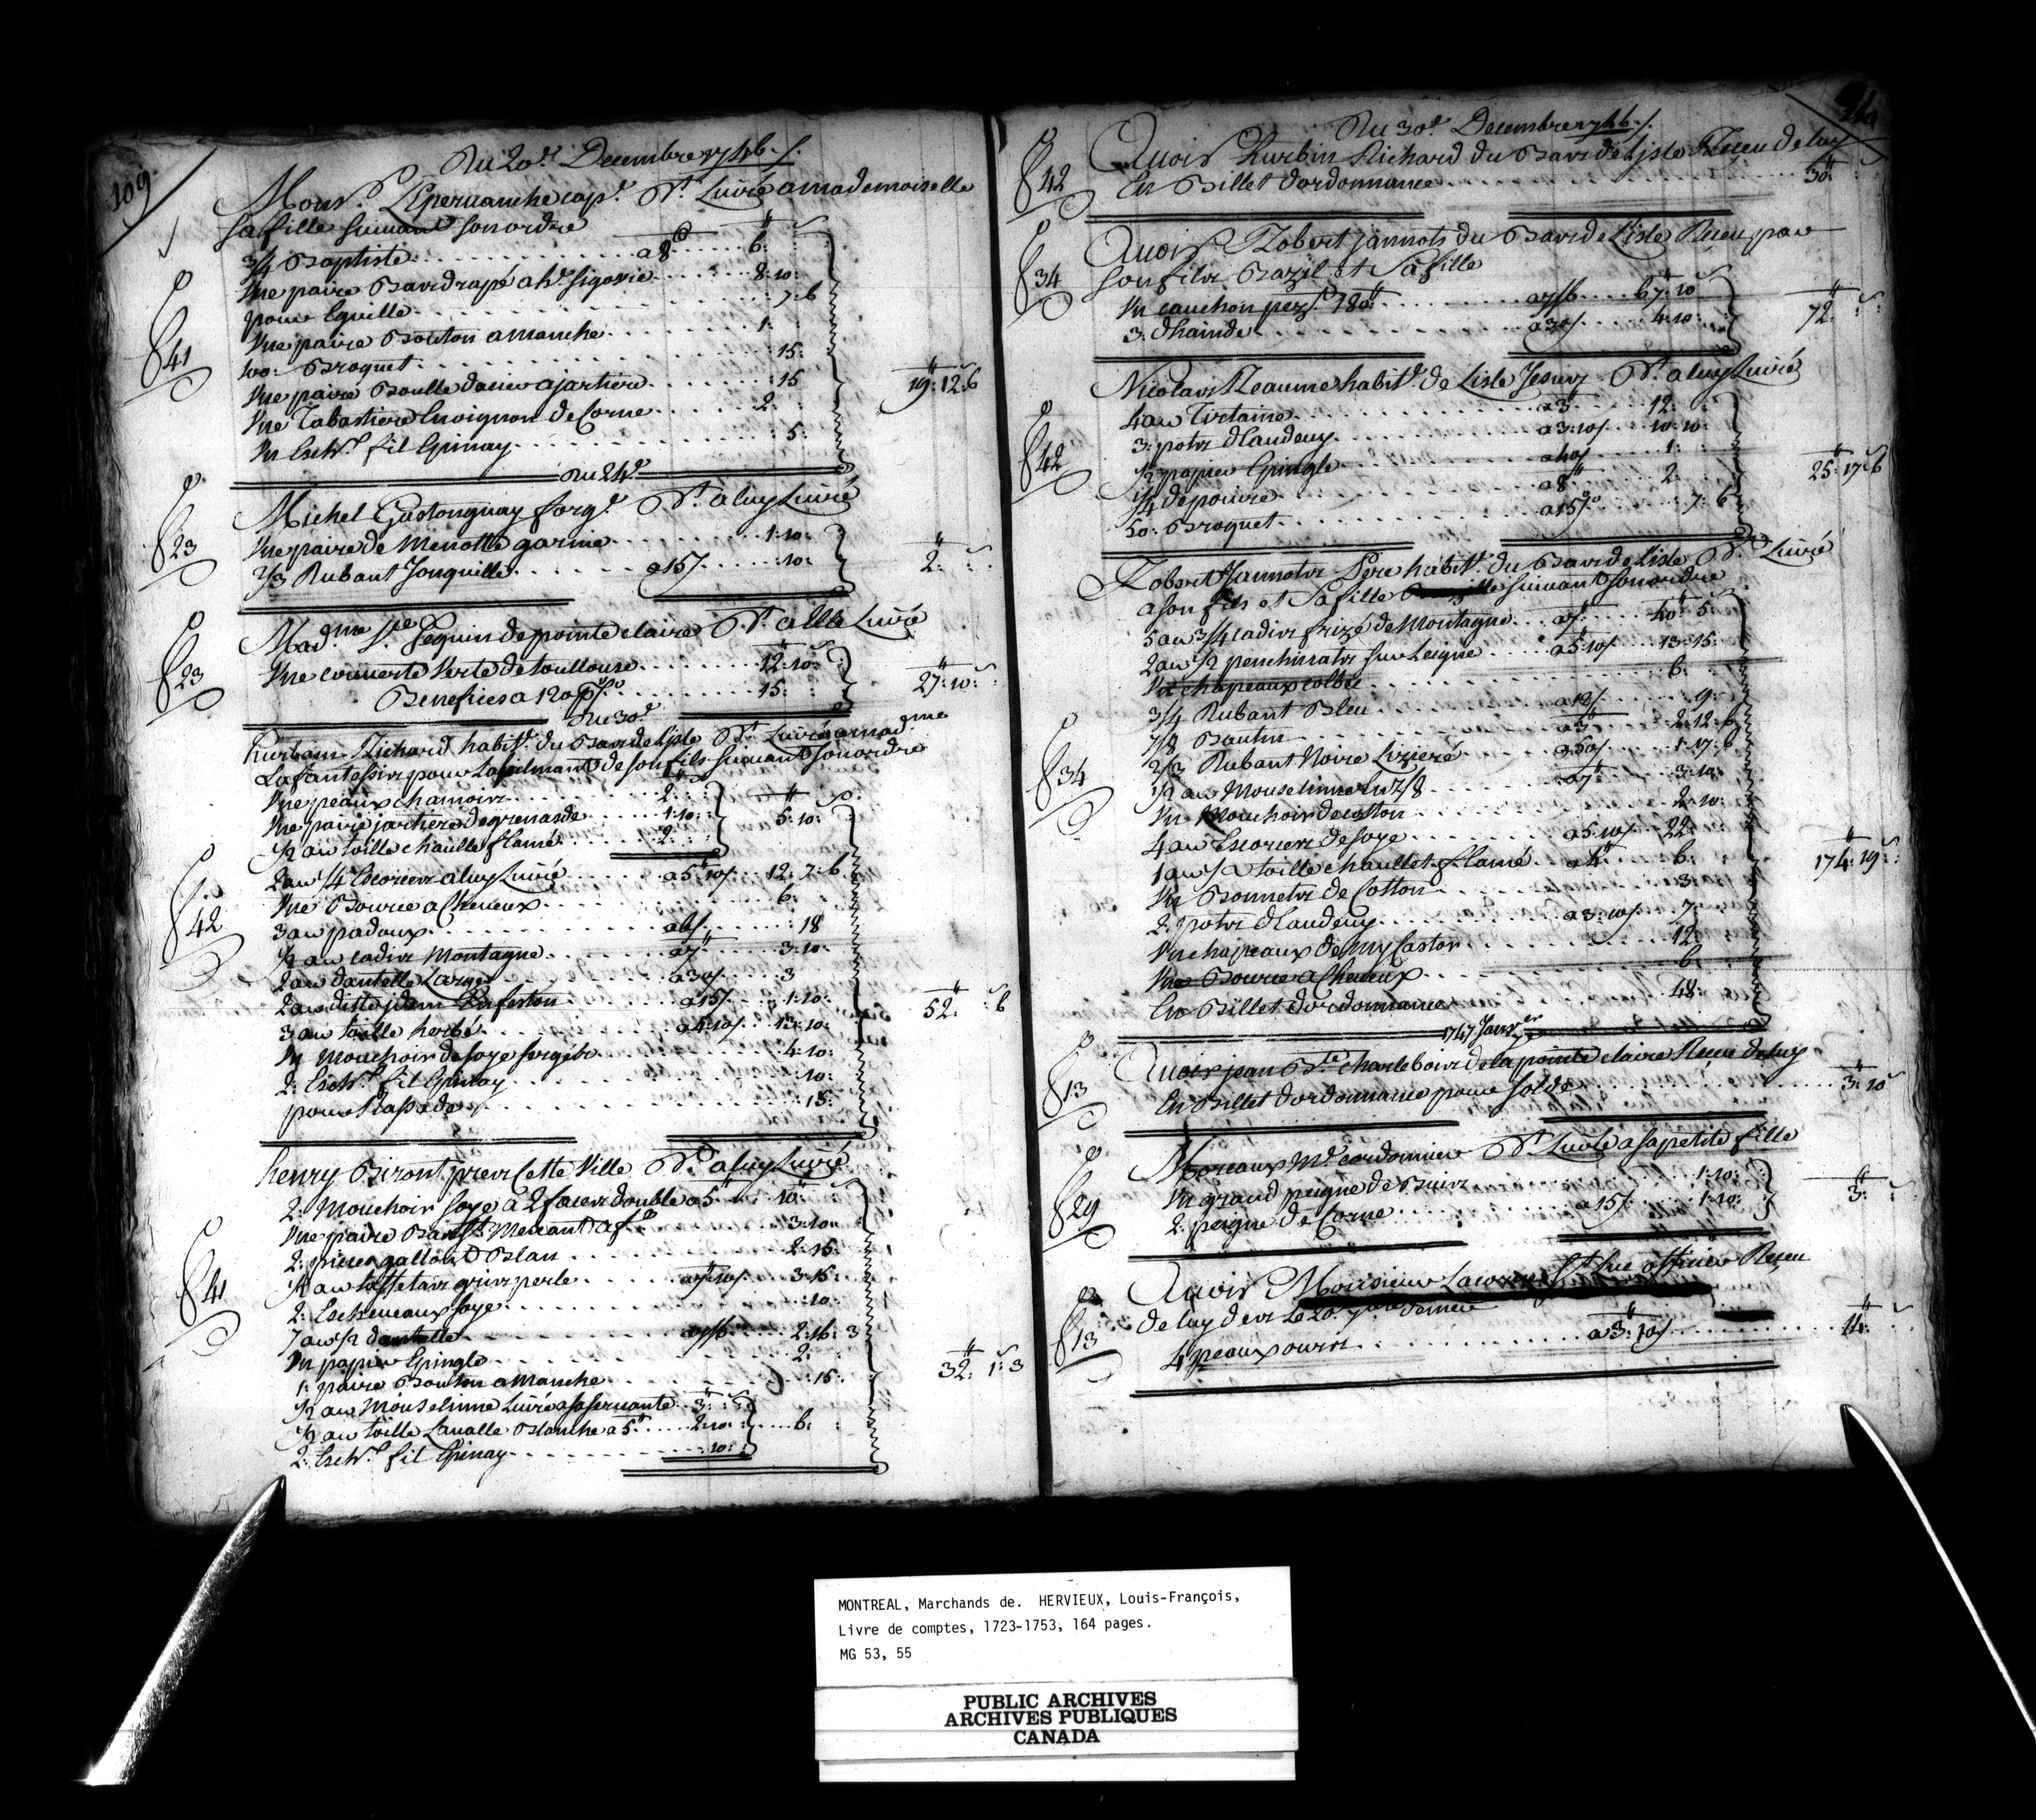 109
Du 20e. Decembre 1746./.
Monsr. Lepervanche capt. Dt. Livré a mademoiselle
Sa fille suivant son ordre
3/4 Baptiste a 8 6:
Vne paire Bas drapé a he. sigovie 8:10:
pour Eguille 7:6
Vne paire Bouton a manche 1:
100: Broquet 15:
Vne paire Boucle dacier a jartiere 15
Vne Tabastiere Livoignon de Corne 2:
Vn Eschv. fil Epinay 5:
41
19:12:6
Du 24e.
Michel Gastonguay forgn. Dt. a luy Livré
Vne paire de Menotte garnie 1:10:
2/3 Rubant Jonquille a 15/ 10:
23
2:
Madme. Ste. Seguin de pointe claire Dt. a Elle Livré
Vne couverte Verte de toullouse 12:10:
Benefices a 120 p% 15:
23
27:10:
Du 30e.
hurbain Richard habitt. du Bas de Lisle Dt. Livré a madme
Lafantesir pour Lafulmant de son fils suivant son ordre
Vne peaux chamoir 2:
Vne paire jartiere de grenade 1:10:
1/2 au toille chaulle flamé 2:
5:10:
2 au 1/4 Escorier a luy Livré a 5:10/ 12:7:6
Vne Bource a Cheveux 6:
3 au padoux a 6/ 18
1/2 au cadir Montagne a 7 3:10:
2 au dantelle Large a 30/ 3
2 au ditte jdem En feston a 15/ 1:10:
3 au toille herbé a 4:10/ 13:10:
Vn Mouchoir de soye sergibe 4:10:
2: Eschv. fil Epinay 10:
pour Passade 15:
42
52: 6
henry Biront prer Cette Ville Dt. a luy Livré
2: Mouchoir soye a 2 facer double a 5 10:
Vne paire Bas St. Mercant a f. 3:10:
2: pieces gallout Blan 2:15:
1/2 au taffetar grir perle a 7:10/ 3:15:
2: Escheveaux soye 10:
7 au 1/2 dantelle a 7/6 2:16:3
Vn papier Epingle 2:
1: paire Bouton a Manche 15:
1/2 au Mouselinne Livré a sa servante 3:
1/2 au toille Lavalle Blanche a 5 2:10: 6:
2: Eschv. fil Epinay 10:
41
32:1:3
Du 30e. Decembre 1746./.
Avoir hurbin Richard du Bas de Lisle Receu de luy
En Billet dordonnance 30:
42
Avoir Robert jannots du Bas de Lisle Receu par
son filx Bazil et Sa fille
Vn cauchon pezt. 180 a 7/6 67:10
3: dhainde a 30/ 4:10:
34
72:
Nicolas Reaume habitt. de Lisle Jesus Dt. a luy Livré
4 au Tirtaine a 3 12:
3: potx dLaudevy a 3:10/ 10:10:
1/2 papier Epingle a 40/ 1:
1/4 de poivre a 8 2:
50: Broquet a 15% 7:6
42
25:17:6
Robert Jannotx Pere habitt. du Bas de Lisle Dt. Livré
a son fils et Sa fille suivant son ordre
5 au 3/4 cadir frizé de Montagne a 7 40:5:
2 au 1/2 penchinatx sur Leigne a 5:10/ 13:15:
Vn chapeaux collié 6:
3/4 Rubant Bleu a 12/ 9:
7/8 Bautin a 3 2:12:6
2/3 Rubant Noire Lizeré a 50/ 1:17:6
1/2 au Mouselinne En 7/8 a 7 3:10:
Vn Mouchoir de cotton 2:10:
4 au Escorier de soye a 5:10/ 22:
1 au 1/2 toille chaullet flamé a 4 6:
Vn Bonnetx de Cotton 3:
2: potx dLaudevy a 3:10/ 7:
Vn chapeaux demy Castor 12:
Vne Bource a Cheveux 6:
En Billet dordonnance 48:
34
174:19:
1747 Janver
Avoir jean Bte. charlebour de la pointe claire Receu de luy
En Billet dordonnance pour solde 3:10
13
Moreaux Me. cordonnier Dt. Livré a sa petite fille
Vn grand peigne de Buir 1:10:
2: peigne de Corne a 15/ 1:10:
29
3:
Avoir Monsieur Lacorne St. Luc officier Receu
de luy der Le 20. 7bre dernier
4 peaux ourir a 3:10/ 14:
13
MONTREAL, Marchands de. HERVIEUX, Louis-François,
Livre de comptes, 1723-1753, 164 pages.
MG 53, 55
PUBLIC ARCHIVES
ARCHIVES PUBLIQUES
CANADA